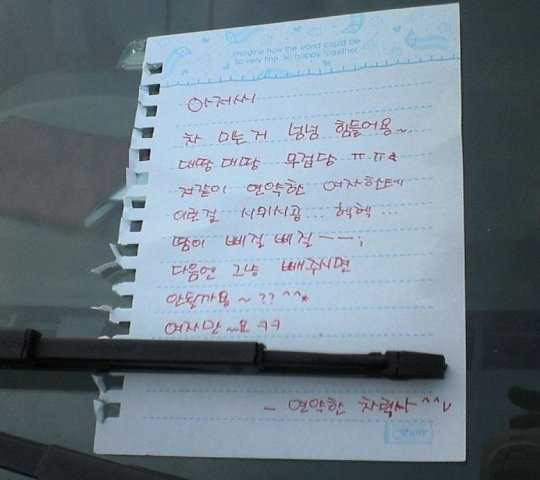 Imagine how the world could be
So very fine, So happy together
아저씨
차 미는거 넘넘 힘들어용~
대땅대땅 무겁당 ㅠ.ㅠ
저같이 연약한 여자한테
이런걸 시키시공... 헥헥...
땀이 삐질 삐질ㅡㅡ;
다음엔 그냥 빼주시면
안될까용~?? ^^*
여자만~요 ㅋㅋ
- 연약한 차력사^^V